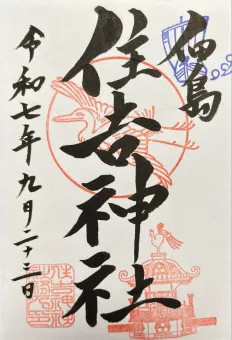 佃島
住吉神社
令和七年九月二十三日